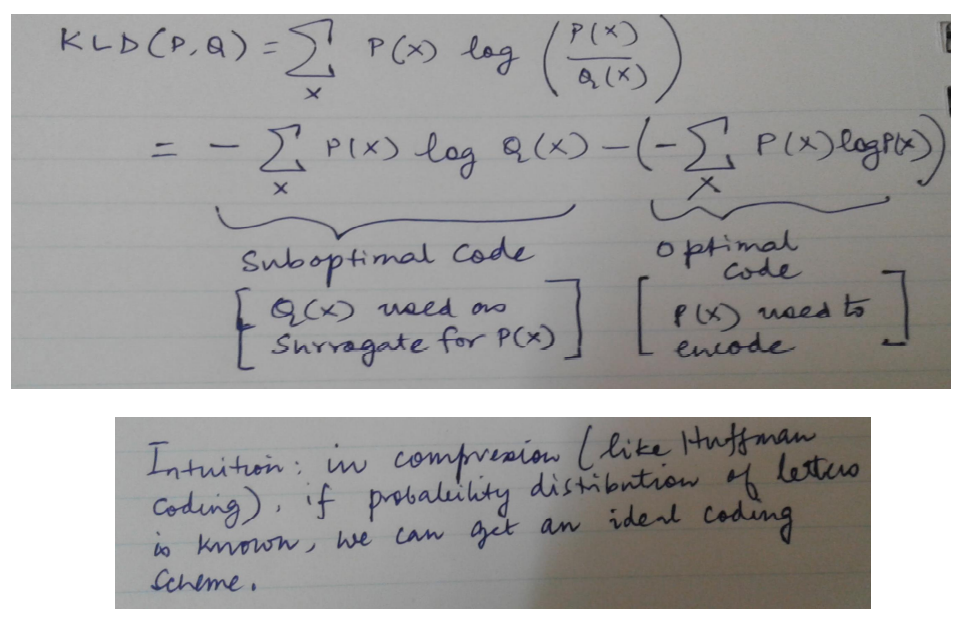 KLD(P,Q) = ∑_x P(x) log (P(x)/Q(x))
= - ∑_x P(x) log Q(x) - (- ∑_x P(x) log P(x))
Suboptimal Code
Optimal
code
[Q(x) used as
Surrogate for P(x)]
[P(x) used to
encode]
Intuition: in compression (like Huffman
Coding), if probability distribution of letters
is known, we can get an ideal coding
scheme.